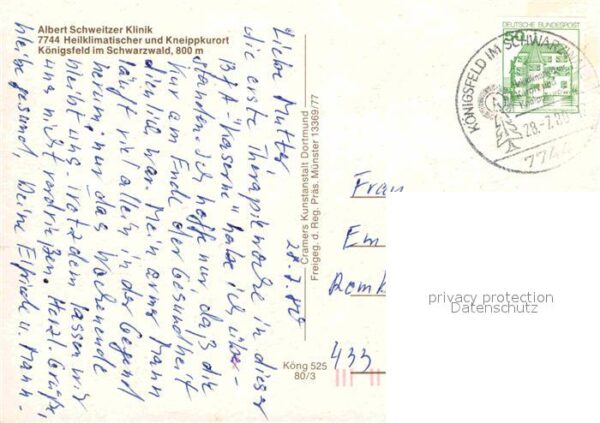 Albert Schweitzer Klinik
7744 Heilklimatischer und Kneippkurort
Königsfeld im Schwarzwald, 800 m
28.7.80
Liebe Mutter
die erste Therapiewoche in dieser
BfA-"Kaserne" habe ich über-
standen. Ich hoffe nur daß die
Kur am Ende der Gesundheit
dienlich war. Mein armer Mann
läuft viel allein in der Gegend
herum, nur das Wochenende
bleibt uns. Trotzdem lassen wir
uns nicht verdrießen. Herzl. Grüße,
bleibe gesund, Deine Elfriede u. Mann.
Cramers Kunstanstalt Dortmund
Freigeg. d. Reg. Präs. Münster 13369/77
Köng 525
80/3
DEUTSCHE BUNDESPOST
50
KÖNIGSFELD IM SCHWARZW
28.-7.80
7744
Frau
Em
433
privacy protection
Datenschutz